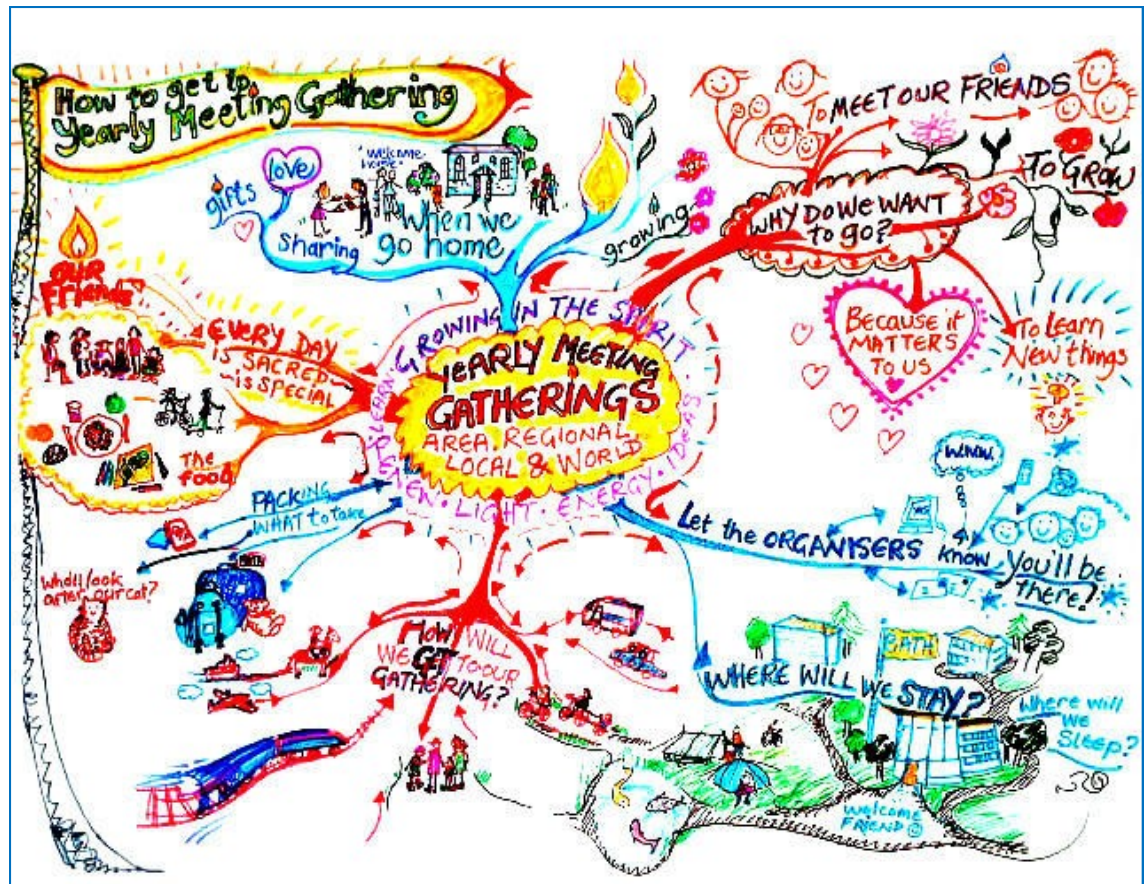 How to get to
Yearly Meeting Gathering
gifts
love
sharing
"welcome
home"
When we
go home
growing
To MEET OUR FRIENDS
To GROW
WHY DO WE WANT
to go?
Because it
MATTERS
TO US
To Learn
New things
OUR
Friends
EVERY DAY
is SACRED
is SPECIAL
The
food
GROWING IN THE SPIRIT
YEARLY MEETING
GATHERINGS
AREA. REGIONAL
LOCAL & WORLD
NEW · LIGHT · ENERGY · IDEAS
PACKING
WHAT to take
Who'll look
after our cat?
HOW WILL
WE GET TO OUR
GATHERING?
www.
Let the ORGANISERS know
You'll be
there?
BATH
WHERE WILL WE STAY?
Where will
we
Sleep?
Welcome
FRIEND